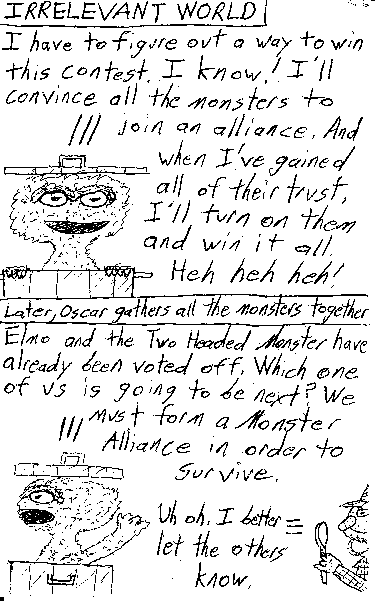 IRRELEVANT WORLD
I have to figure out a way to win
this contest. I know! I'll
convince all the monsters to
join an alliance. And
when I've gained
all of their trust,
I'll turn on them
and win it all.
Heh heh heh!
Later, Oscar gathers all the monsters together
Elmo and the Two Headed Monster have
already been voted off. Which one
of us is going to be next? We
must form a Monster
Alliance in order to
survive.
Uh oh. I better
let the others
know.